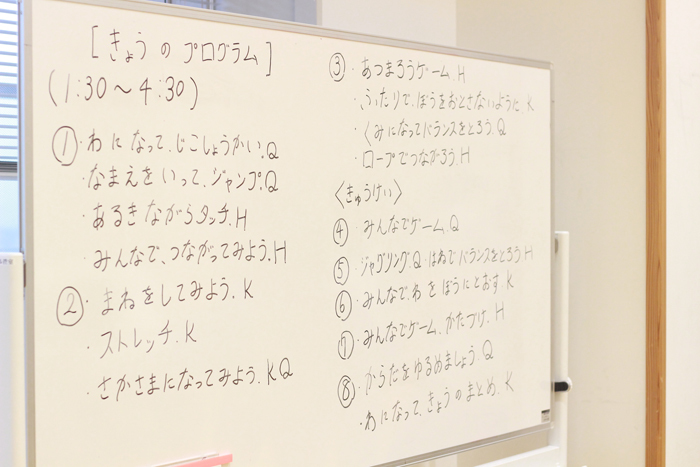 [きょうのプログラム]
(1:30〜4:30)
① わになって、じこしょうかい.Q
・なまえをいって、ジャンプ.Q
・あるきながらタッチ.H
・みんなで、つながってみよう.H
②・まねをしてみよう.K
・ストレッチ.K
・さかさまになってみよう.KQ
③・あつまろうゲーム.H
・ふたりで、ぼうをおとさないように.K
・くみになってバランスをとろう.Q
・ロープでつながろう.H
〈きゅうけい〉
④・みんなでゲーム.Q
⑤・ジャグリング.Q・はねでバランスをとろう.H
⑥・みんなで、わをぼうにとおす.K
⑦・みんなでゲーム、かたづけ.H
⑧・からだをゆるめましょう.Q
・わになって、きょうのまとめ.K